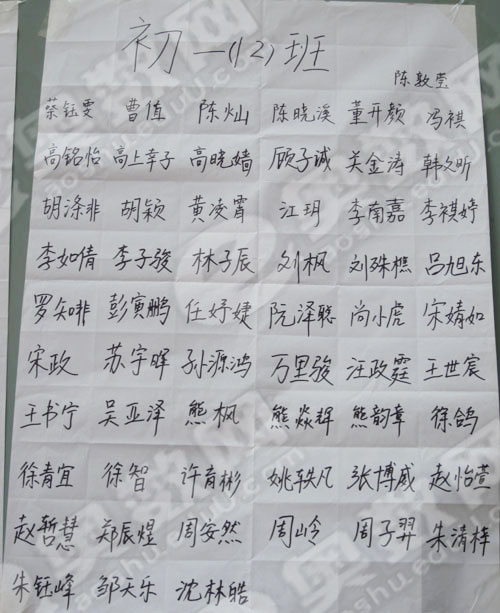 初一(12)班
陈敦莹
蔡钰雯 曹值 陈灿 陈晓溪 董开颜 冯祺
高铭怡 高上幸子 高晓嫱 顾子诚 关金涛 韩文昕
胡涤非 胡颖 黄凌霄 江玥 李南嘉 李祺婷
李如倩 李子骏 林子辰 刘枫 刘殊樵 吕旭东
罗知非 彭寅鹏 任妤婕 阮泽聪 尚小虎 宋婧如
宋政 苏宇晖 孙源鸿 万里骏 汪政霆 王世宸
王书宁 吴亚泽 熊枫 熊焱辉 熊韵章 徐鸽
徐青宜 徐智 许育彬 姚轶凡 张博威 赵怡萱
赵哲慧 郑辰煜 周安然 周岭 周子羿 朱清梓
朱钰峰 邹天乐 沈林皓